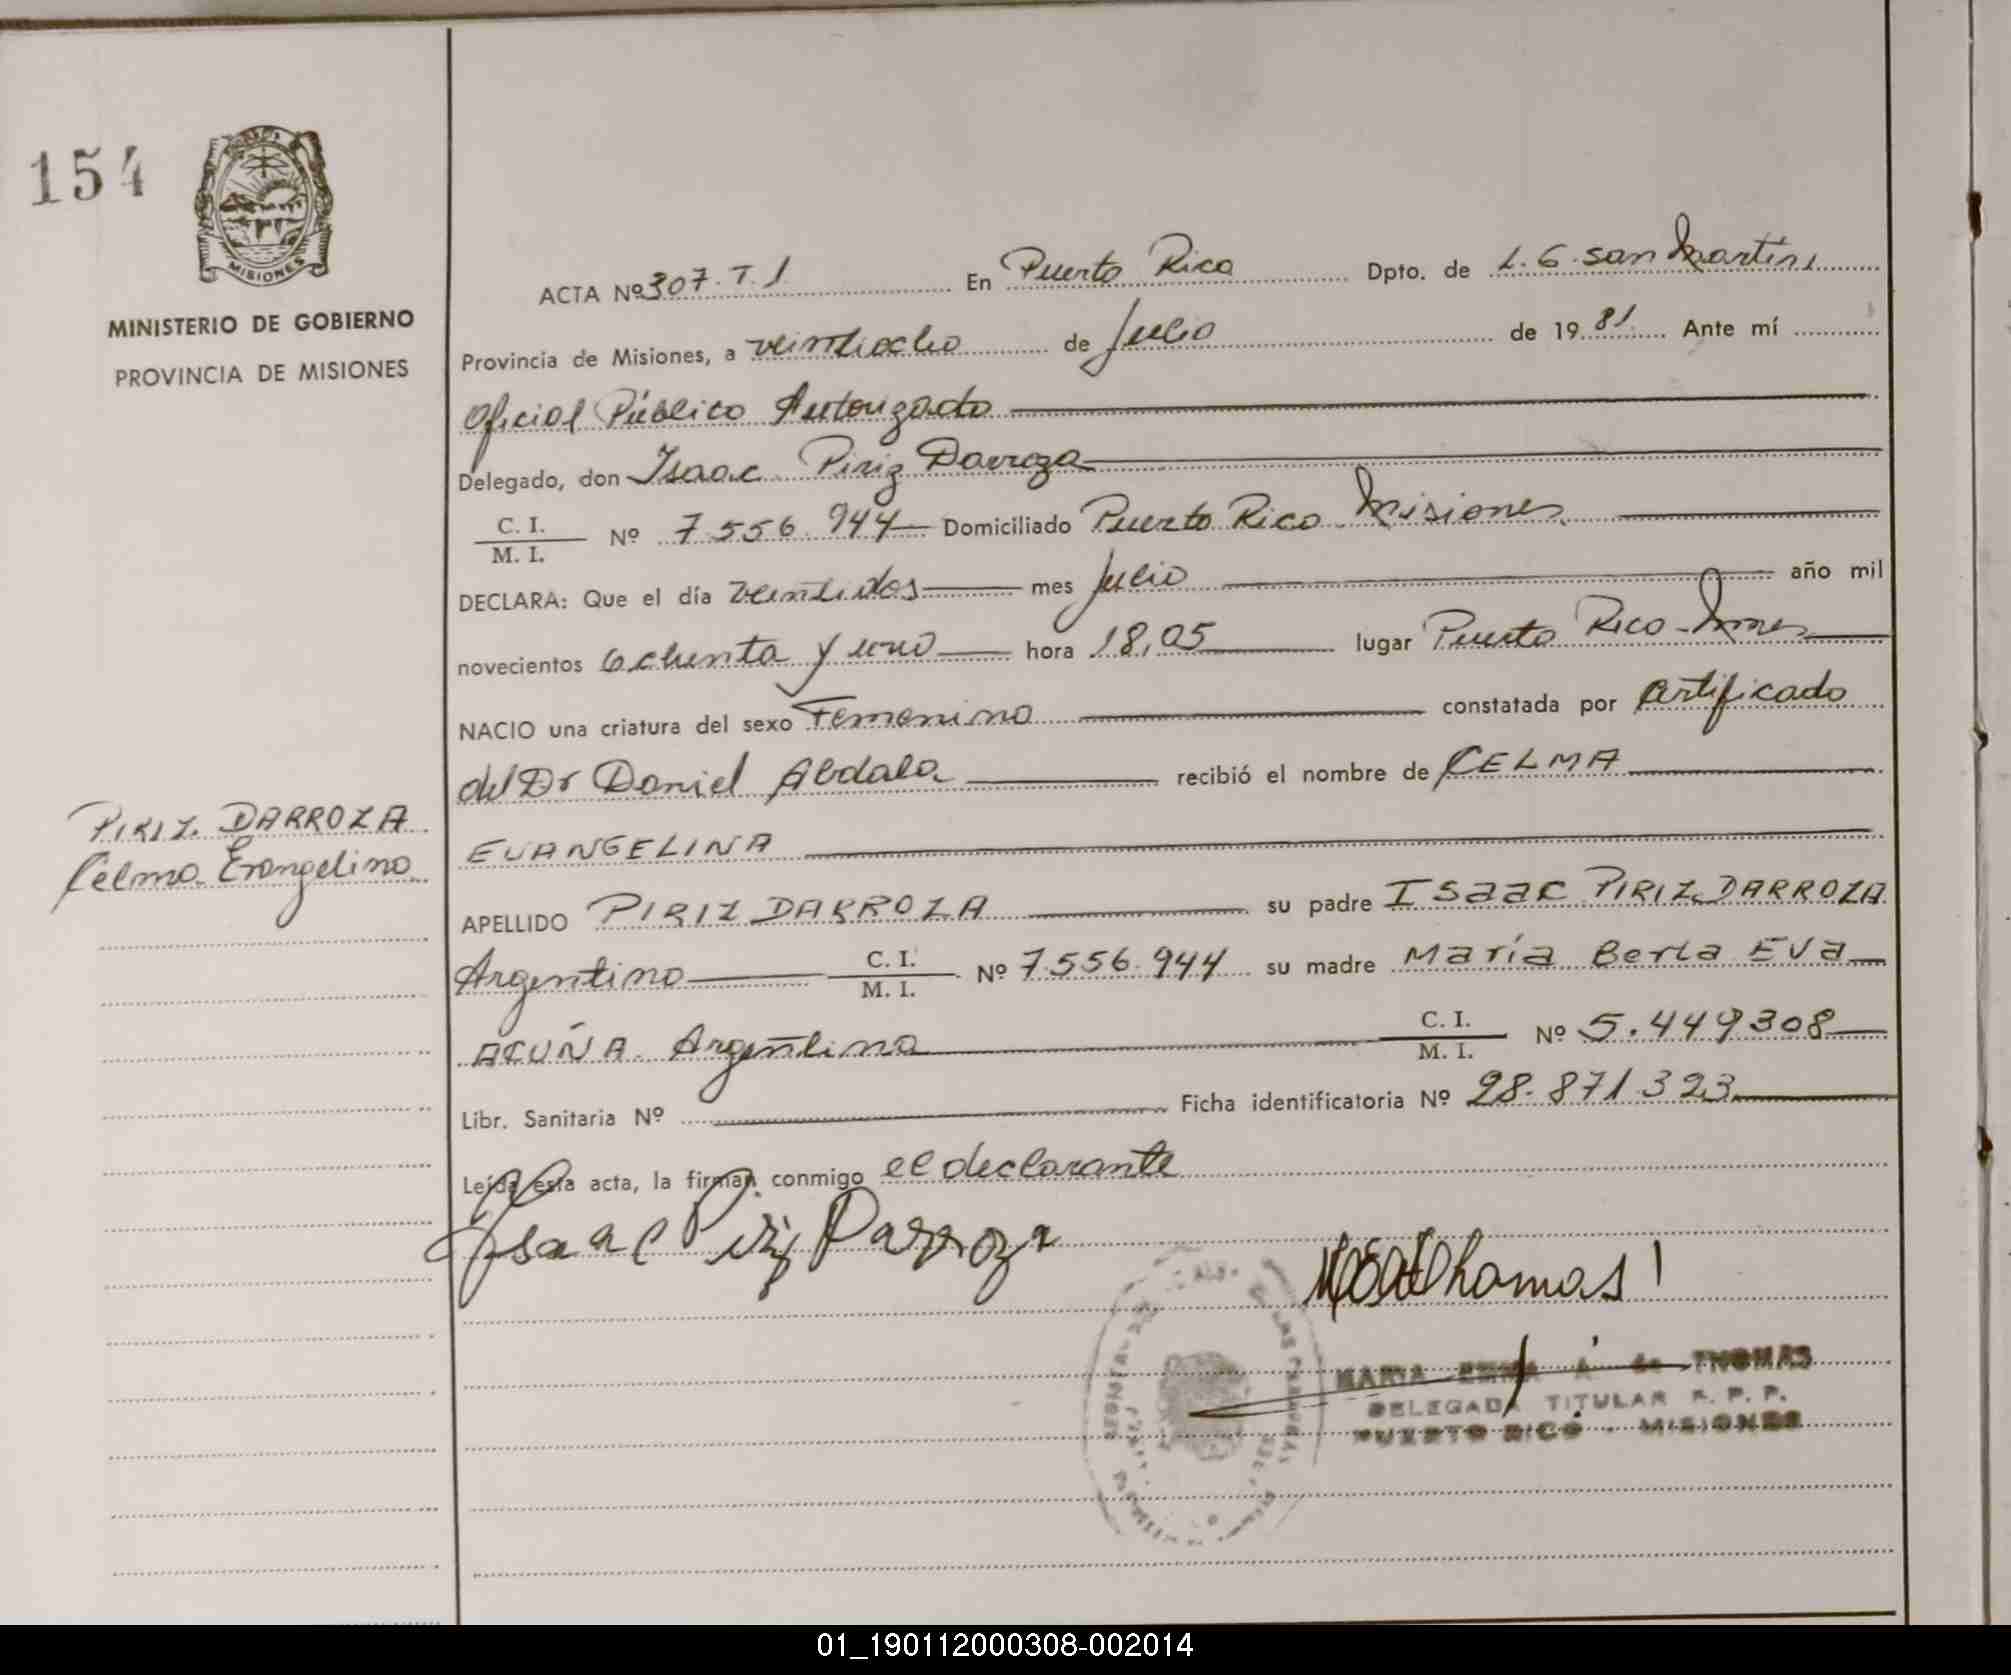 154
MISIONES
MINISTERIO DE GOBIERNO
PROVINCIA DE MISIONES
PIRIZ DARROZA
Celma Evangelina
ACTA Nº 307. T. I En Puerto Rico Dpto. de L. G. San Martín
Provincia de Misiones, a veintiocho de Julio de 1981 Ante mí
Oficial Público Autorizado
Delegado, don Isaac Piriz Darroza
C. I.
M. I. Nº 7.556.944 Domiciliado Puerto Rico Misiones
DECLARA: Que el día veintidos mes Julio año mil
novecientos ochenta y uno hora 18,05 lugar Puerto Rico - Mnes
NACIO una criatura del sexo Femenino constatada por certificado
del Dr Daniel Abdala recibió el nombre de CELMA
EVANGELINA
APELLIDO PIRIZ DARROZA su padre ISaac PIRIZ DARROZA
Argentino C. I.
M. I. Nº 7.556.944 su madre María Berta Eva
ACUÑA Argentina C. I.
M. I. Nº 5.449308
Libr. Sanitaria Nº Ficha identificatoria Nº 28.871.323
Leída esta acta, la firman conmigo el declarante
Isaac Piriz Darroza
MARIA EMMA A de THOMAS
DELEGADA TITULAR R. P. P.
PUERTO RICO - MISIONES
01_190112000308-002014